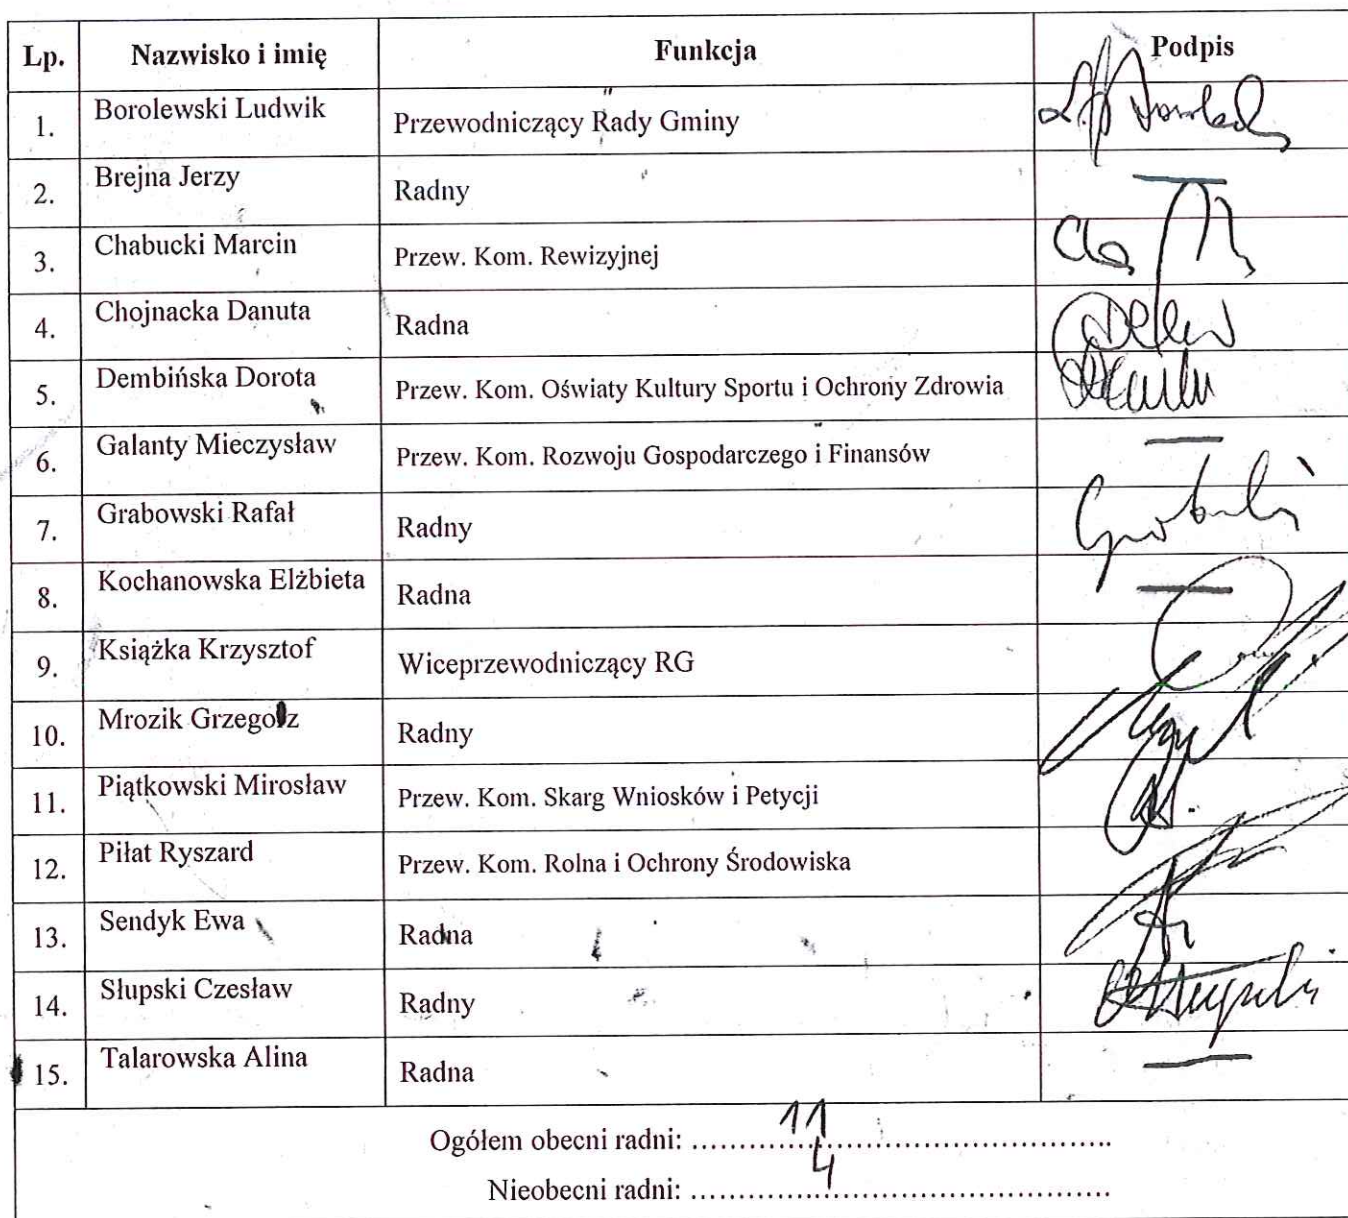 Lp. Nazwisko i imię Funkcja Podpis
1. Borolewski Ludwik Przewodniczący Rady Gminy
2. Brejna Jerzy Radny —
3. Chabucki Marcin Przew. Kom. Rewizyjnej
4. Chojnacka Danuta Radna
5. Dembińska Dorota Przew. Kom. Oświaty Kultury Sportu i Ochrony Zdrowia
6. Galanty Mieczysław Przew. Kom. Rozwoju Gospodarczego i Finansów —
7. Grabowski Rafał Radny
8. Kochanowska Elżbieta Radna —
9. Książka Krzysztof Wiceprzewodniczący RG
10. Mrozik Grzegorz Radny
11. Piątkowski Mirosław Przew. Kom. Skarg Wniosków i Petycji
12. Piłat Ryszard Przew. Kom. Rolna i Ochrony Środowiska
13. Sendyk Ewa Radna
14. Słupski Czesław Radny
15. Talarowska Alina Radna —
Ogółem obecni radni: ........11........
Nieobecni radni: ........4........